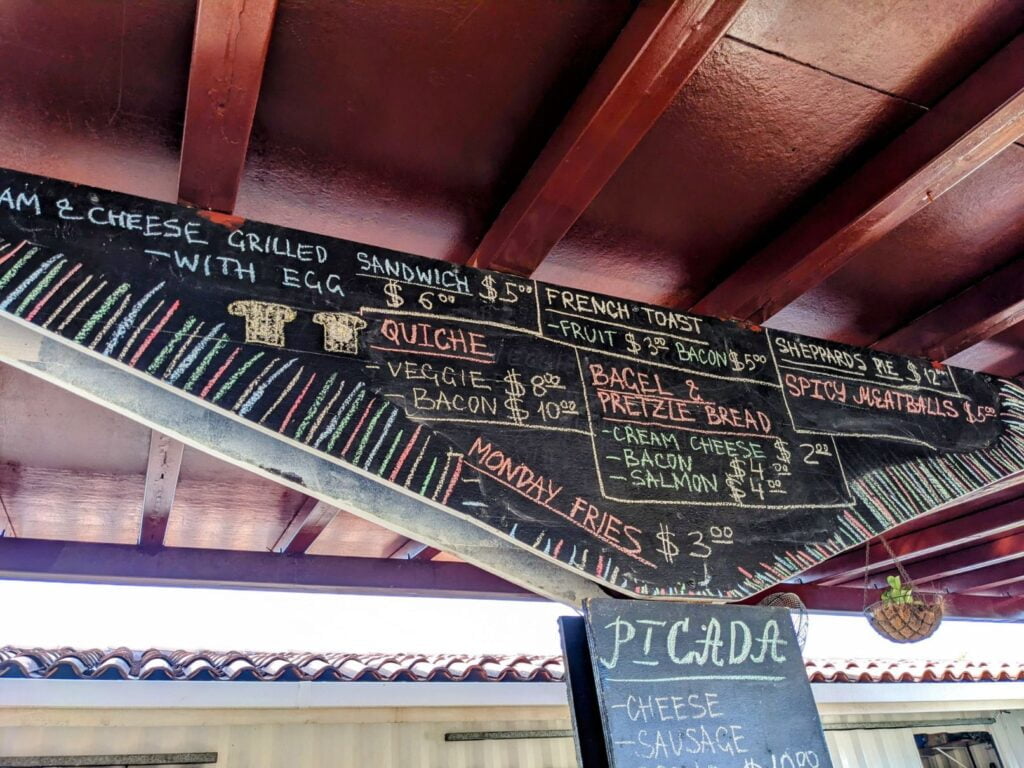 AM & CHEESE GRILLED SANDWICH $5.00
- WITH EGG $6.00
QUICHE
- VEGGIE $8.00
- BACON $10.00
MONDAY FRIES $3.00
FRENCH TOAST
- FRUIT $3.00 BACON $5.00
BAGEL &
PRETZLE BREAD
- CREAM CHEESE $2.00
- BACON $4.00
- SALMON $4.00
SHEPPARD'S PIE $12.00
SPICY MEATBALLS $5.00
PICADA
- CHEESE
- SAUSAGE
$10.00